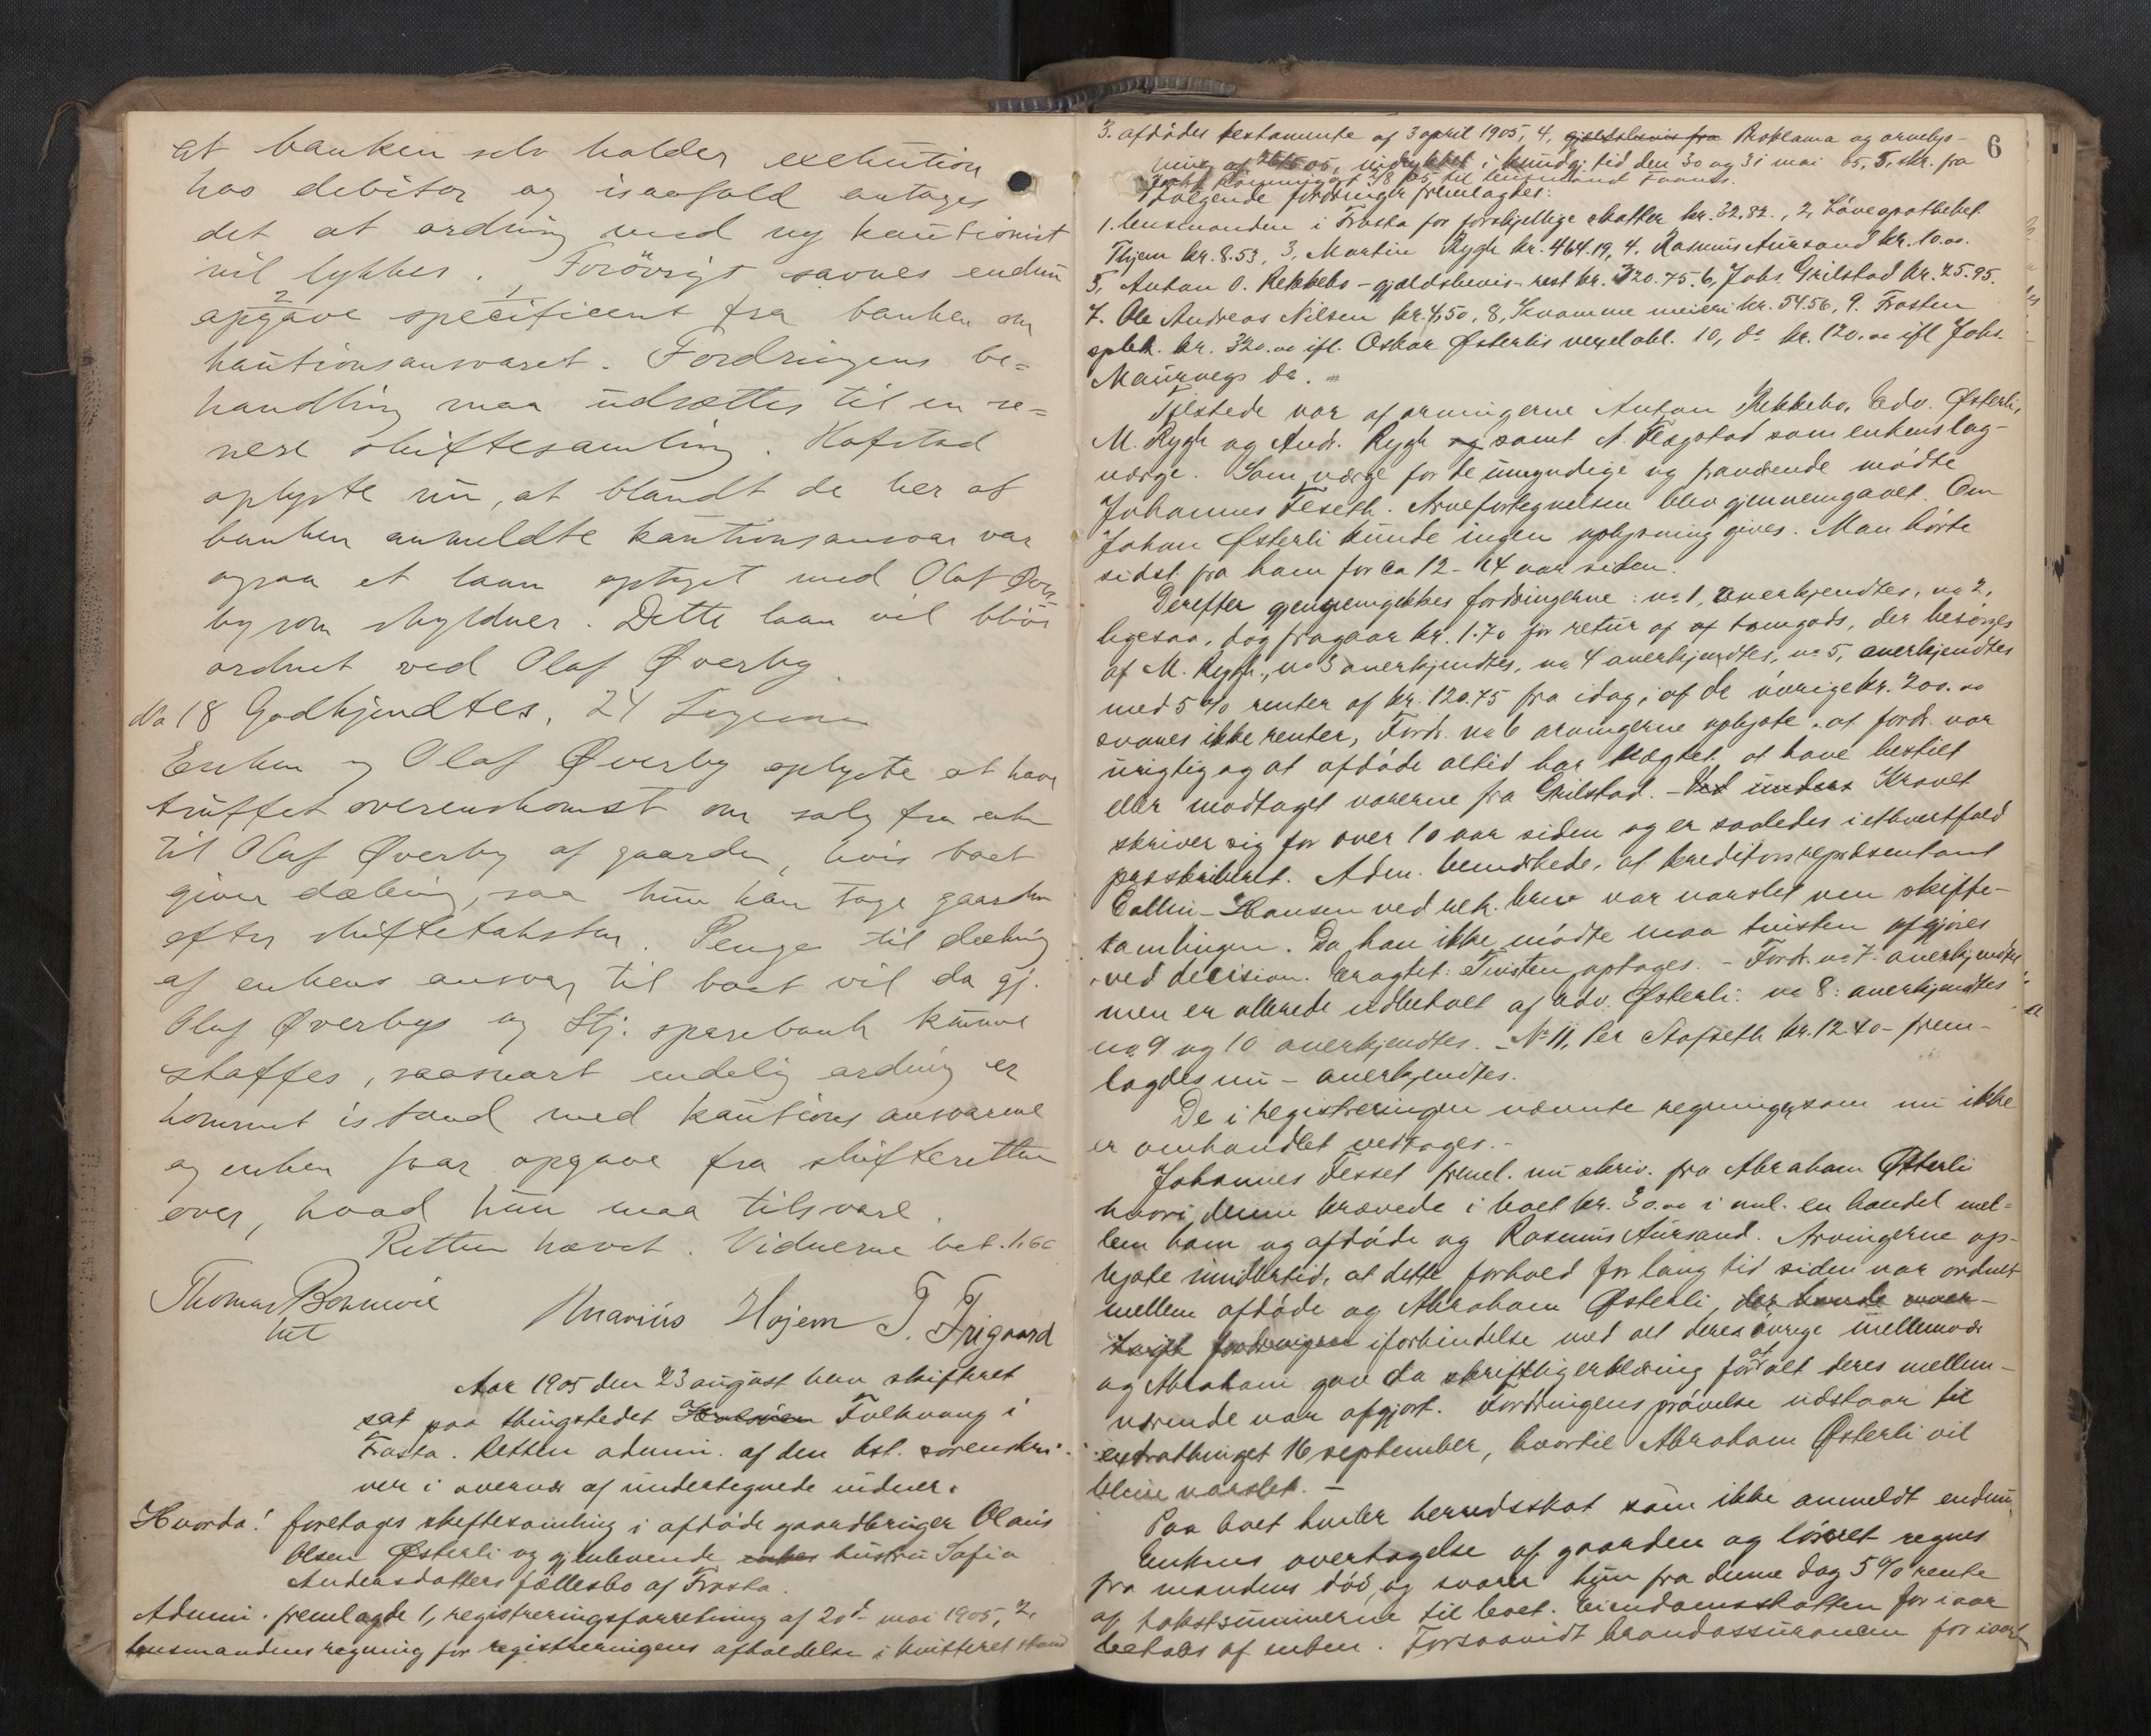 at banken selv holder exekution
hos debitor og isaafald antages
det at ordning med ny kautionist
vil lykkes. Forøvrigt savnes endnu
2 1
opgave specificent fra banken om
kautionsansvaret. Fordringens be=
handling maa udsættes til en se=
nere skiftesamling. Hofstad
oplyste nu, at blandt de her af
banken anmeldte kautionsansvar var
ogsaa et laan optaget med Olaf Øver
by som skyldner. Dette laan vil bliv
ordnet ved Olaf Øverby.
No 18 Godkjendtes, 24
Enken og Olaf Øverby oplyste at have
truffet overenskomst om salg fra enke
til Olaf Øverby af gaarden, hvis boet
giver dækning, saa hun kan tage gaarden
efter skiftetaksten. Penge til dækning
af enkens ansvar til boet vil da gj.
Olaf Øverbys og Stj. sparebank kunne
skaffes, saasnart endelig ordning er
kommet istand med kautionsansvarene
og enken faar opgave fra skifteretten
over, hvad hun maa tilsvare.
Retten hævet. Vidnerne bet. 1,60
Thomas Bonnevie
kst
Marius Hojem T. Frigaard
Aar 1905 den 23 august blev skifteret
sat paa thingstedet Folkvang i
Frosta. Retten admin. af den kst. sorenskri-
ver i overvær af undertegnede vidner.
Hvorda! foretages skiftesamling i afdøde gaardbruger Olaus
Olsen Østerli og gjenlevende enkes hustru Sofia
Andersdatters fællesbo af Frosta.
Admi. fremlagde 1, registreringsforretning af 20de mai 1905, 2,
lensmandens regning for registreringens afholdelse i kvitteret stand
6
3. afdødes testamente af 3 april 1905, 4, gjældsbevis fra Proklama og arvelys-
ning af 05, indrykket i kundgj. tid den 30 og 31 mai 05, 5, skr. fra
05 til lensmand
Følgende fordringer fremlagdes:
1. lensmanden i Frosta for forskjellige skatter kr. 32.82., 2, Løveapotheket
Thjem kr. 8.53, 3, Martin Rygh kr. 464.19, 4. Rasmus Aursand kr. 10.00.
5, Anton O. Rekkebo - gjældsbevis-rest kr. 320.75. 6, Johs. Grilstad kr. 25.95.
7. Ole Andreas Nilsen kr. 4,50, 8, Kvamme meieri kr. 54.56, 9. Frosten
spbk. kr. 320.00 ifl. Oskar Østerlis vexelobl. 10, do kr. 120.00 ifl Johs.
Maurvegs do.
Tilstede var af arvingerne Anton Rekkebo, Edv. Østerli,
M. Rygh og Andr. Rygh og samt A. Flegstad som enkens lag-
værge. Som værge for de umyndige og fraværende mødte
Johannes Feseth. Arvefortegnelsen blev gjennemgaaet. Om
Johan Østerli kunde ingen oplysning gives. Man hørte
sidst fra ham for ca 12-14 aar siden.
Derefter gjennemgikkes fordringerne: no 1, anerkjendtes, no 2,
ligesaa, dog fragaar kr. 1.70 for retur af af tomgods, der besørges
af M. Rygh., no 3 anerkjendtes, no 4 anerkjendtes, no 5, anerkjendtes
med 5 % renter af kr. 120.75 fra idag; af de øvrige kr. 200.00
svares ikke renter, Fordr. no 6 arvingerne oplyste, at fordr. var
urigtig og at afdøde altid har nægtet at have bestilt
eller modtaget varerne fra Grilstad. - Ved undera Kravet
skriver sig for over 10 aar siden og er saaledes i ethvertfald
præskriberet. Adm. bemærkede, at kreditors repræsentant
Collin-Hansen ved rek. brev var varslet om skifte-
samlingen. Da han ikke mødte maa tvisten afgjøres
ved decision. Eragtet: Tvisten optages. - Fordr. no 7. anerkjendtes
men er allerede udbetalt af Edv. Østerli. no 8: anerkjendtes
no 9 og 10 anerkjendtes. - No 11, Per Aafseth kr. 12.40 - frem-
lagdes nu - anerkjendtes.
De i registreringen nævnte regninger, som nu ikke
er omhandlet vedtages. -
Johannes Fesset freml. nu skriv. fra Abraham Østerli
hvori denne krævede i boet kr. 30.00 i anl. en handel mel=
lem ham og afdøde og Rasmus Aursand. Arvingerne op-
lyste imidlertid, at dette forhold for lang tid siden var ordnet
mellem afdøde og Abraham Østerli, der havde over-
taget fordringen i forbindelse med alt deres øvrige mellemvær
og Abraham gav da skriftlig erklæring for at alt deres mellem-
værende var afgjort. Fordringens prøvelse udstaar til
extrathinget 16 september, hvortil Abraham Østerli vil
blive varslet. -
Paa boet hviler herredsskat som ikke anmeldt endnu
Enkens overtagelse af gaarden og løsøret regnes
fra mandens død, og svarer hun fra denne dag 5 % rente
af takstsummerne til boet. Eiendomsskatten for iaar
betales af enken. Forsaavidt brandassurancen for iaar